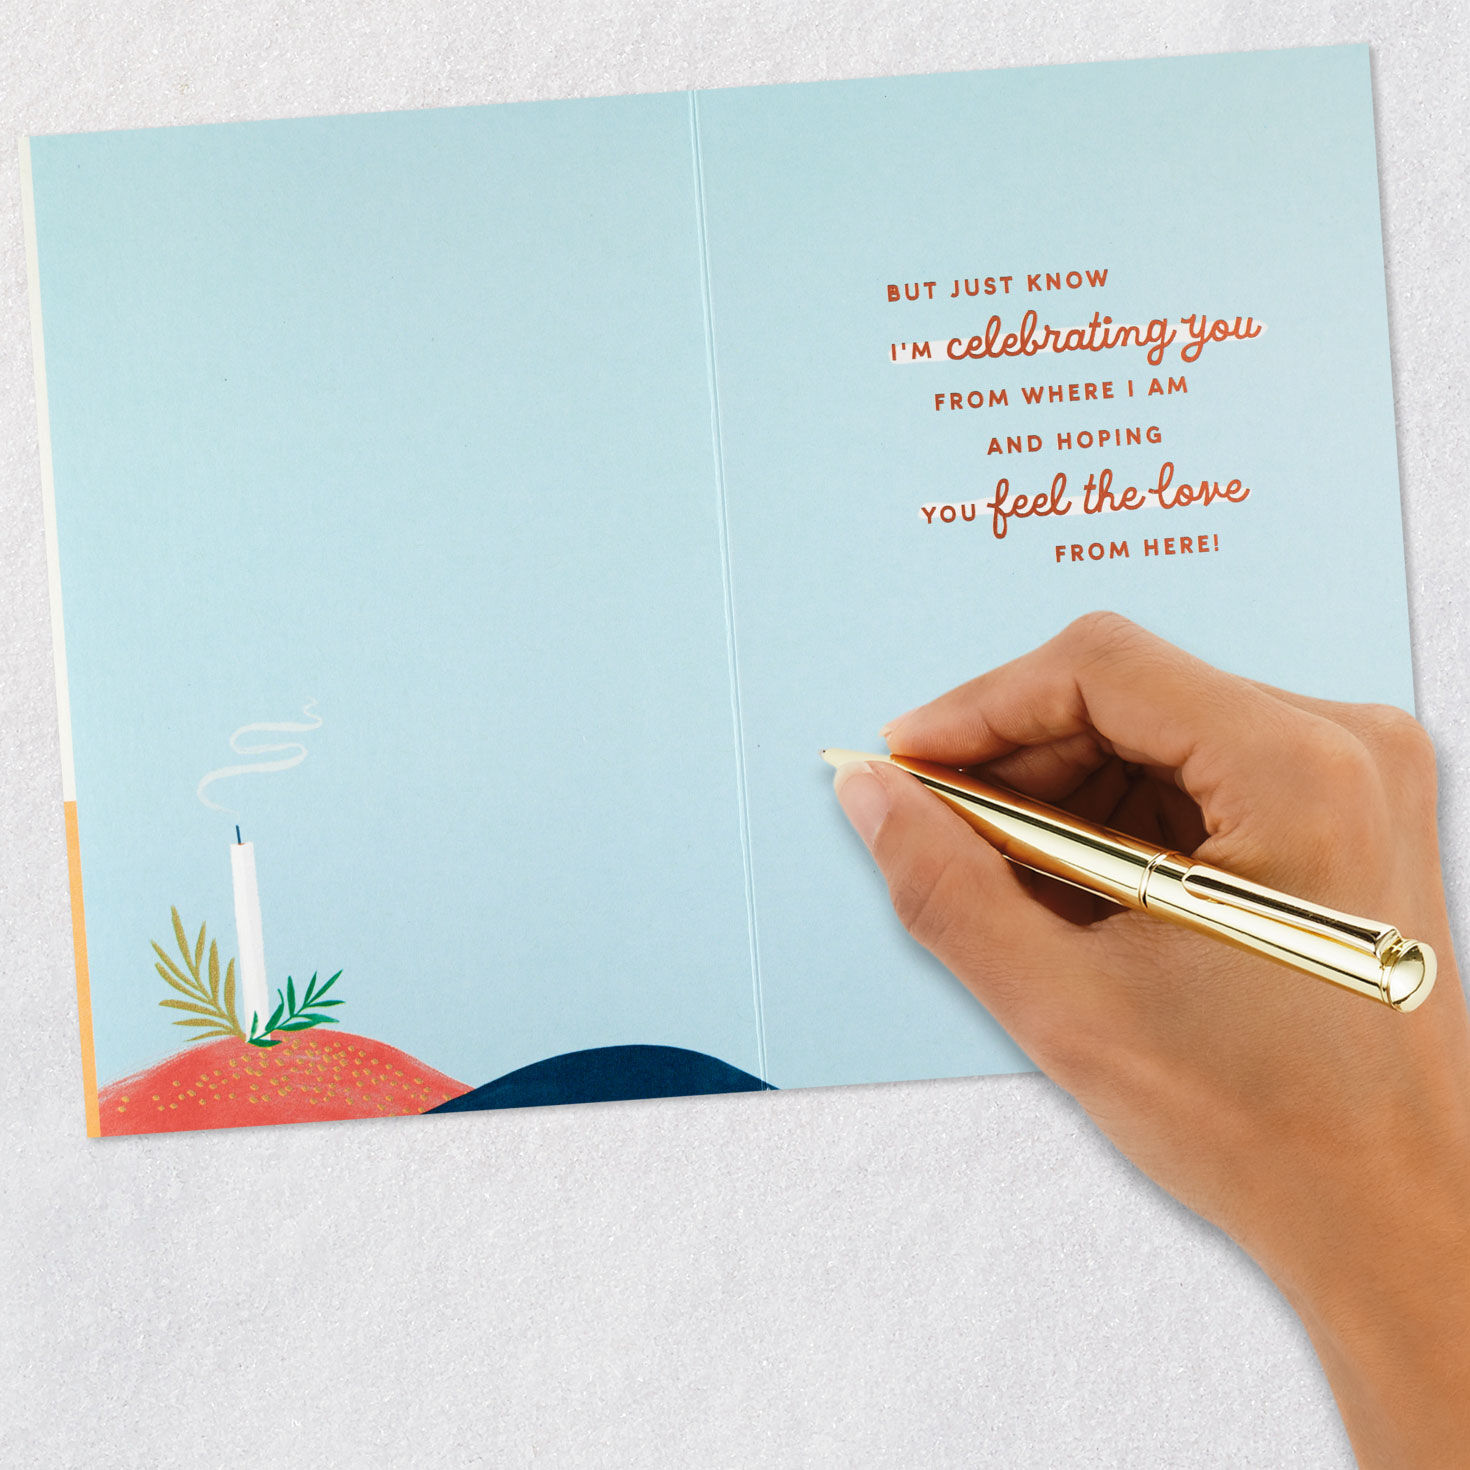 BUT JUST KNOW
I'M celebrating you
FROM WHERE I AM
AND HOPING
YOU feel the love
FROM HERE!